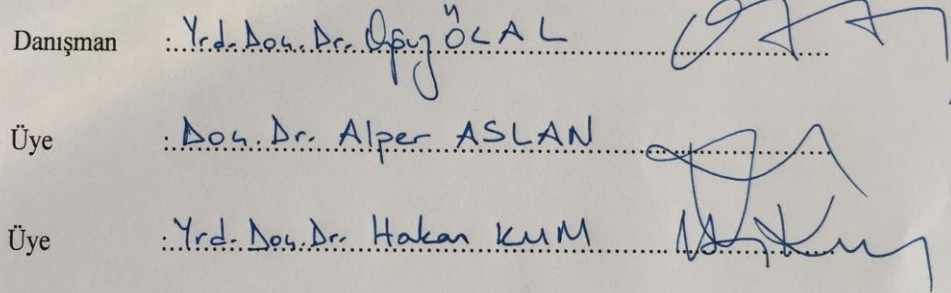 Danışman : Yrd. Doç. Dr. Oğuz ÖCAL
Üye : Doç. Dr. Alper ASLAN
Üye : Yrd. Doç. Dr. Hakan KUM